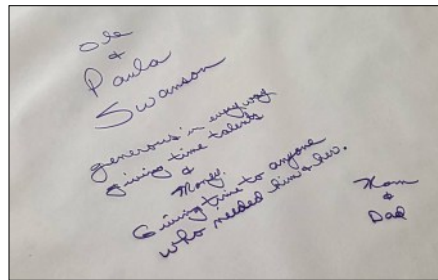 Ole
&
Paula
Swanson
generous in every way
giving time talents
&
Money.
Giving time to anyone
who needed him & her.
Mom
&
Dad